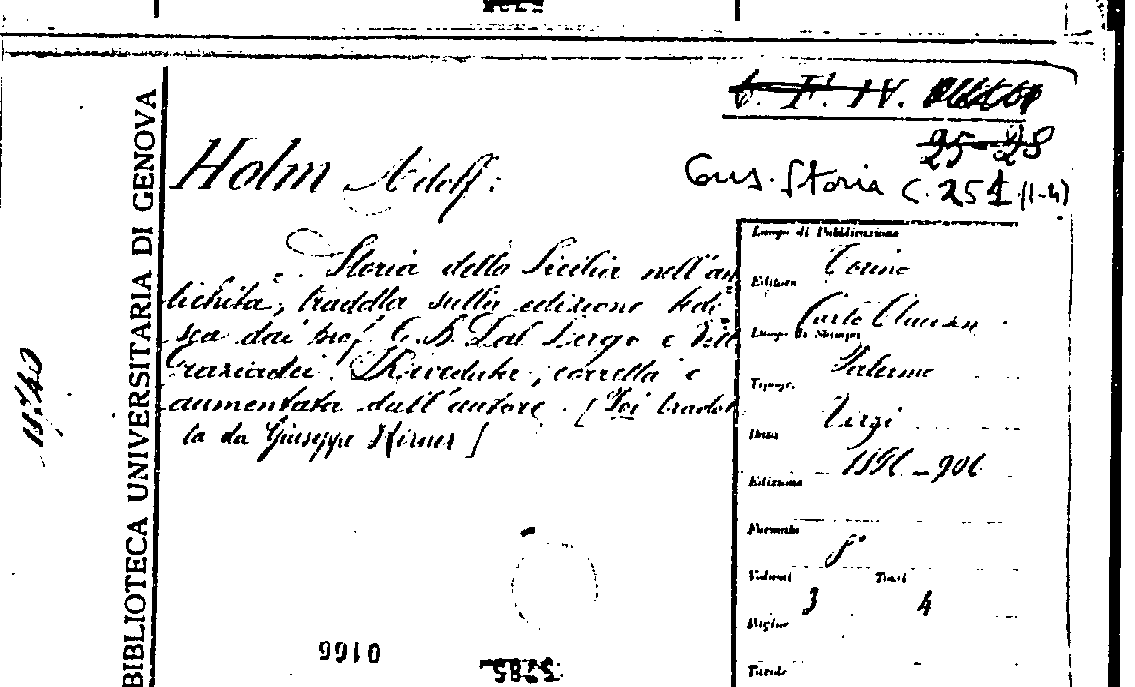 6. F. IV.
25-28
Cons. Storia C. 251 (1-4)
BIBLIOTECA UNIVERSITARIA DI GENOVA
Holm Adolf:
Storia della Sicilia nell'an
tichità, tradotta sulla edizione tede
sca dai prof. G. B. Dal Lago e Vitt
Graziadei. Riveduta, corretta e
aumentata dall'autore. [Poi tradot
ta da Giuseppe Kirner]
Luogo di Pubblicazione
Torino
Editore
Carlo Clausen
Luogo di Stampa
Palermo
Tipogr.
Virzì
Data
1896-901
Edizione
Formato
8°
Volumi Tomi
3 4
Righe
Tavole
0166
5285